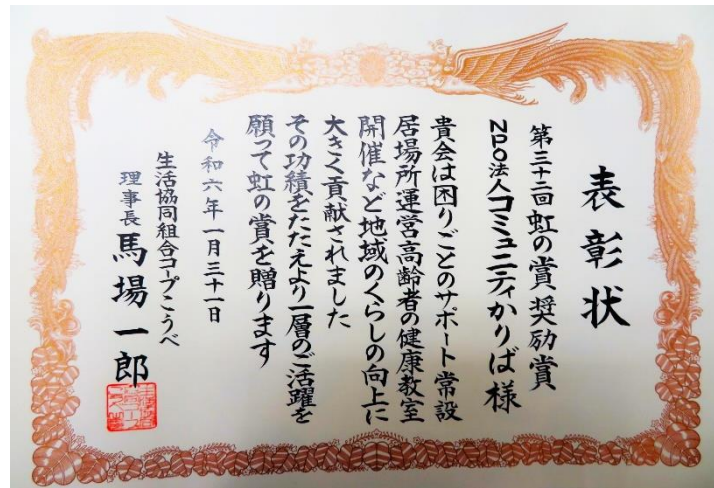 表彰状
第三十二回虹の賞奨励賞
NPO法人コミュニティかりば様
貴会は困りごとのサポート常設
居場所運営高齢者の健康教室
開催など地域のくらしの向上に
大きく貢献されました
その功績をたたえより一層のご活躍を
願って虹の賞を贈ります
令和六年一月三十一日
生活協同組合コープこうべ
理事長 馬場一郎